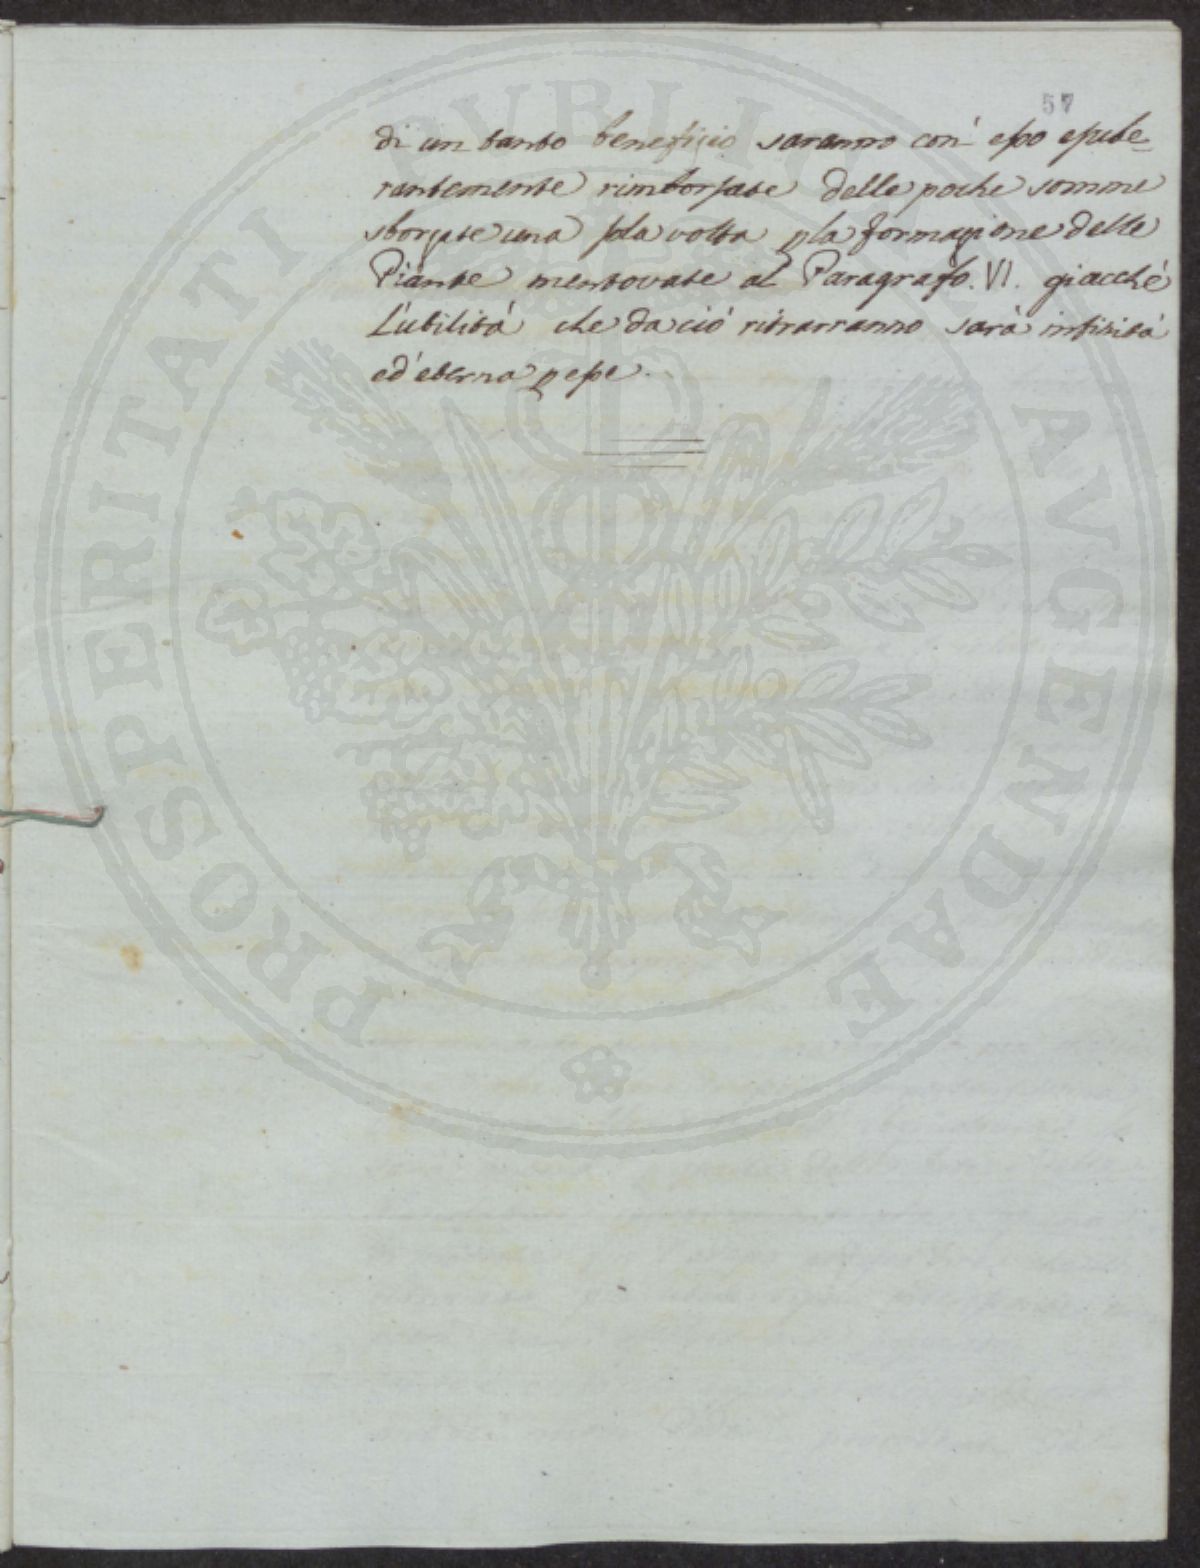 57
di un tanto benefizio saranno con esso esube-
rantemente rimborsate delle poche somme
sborzate una sola volta p la formazione delle
Piante mentovate al Paragrafo. VI. giacché
L'utilità che da ció ritrarranno sarà infinità
ed' eterna p esse.
PROSPERITATI PVBLICAE AVGENDAE